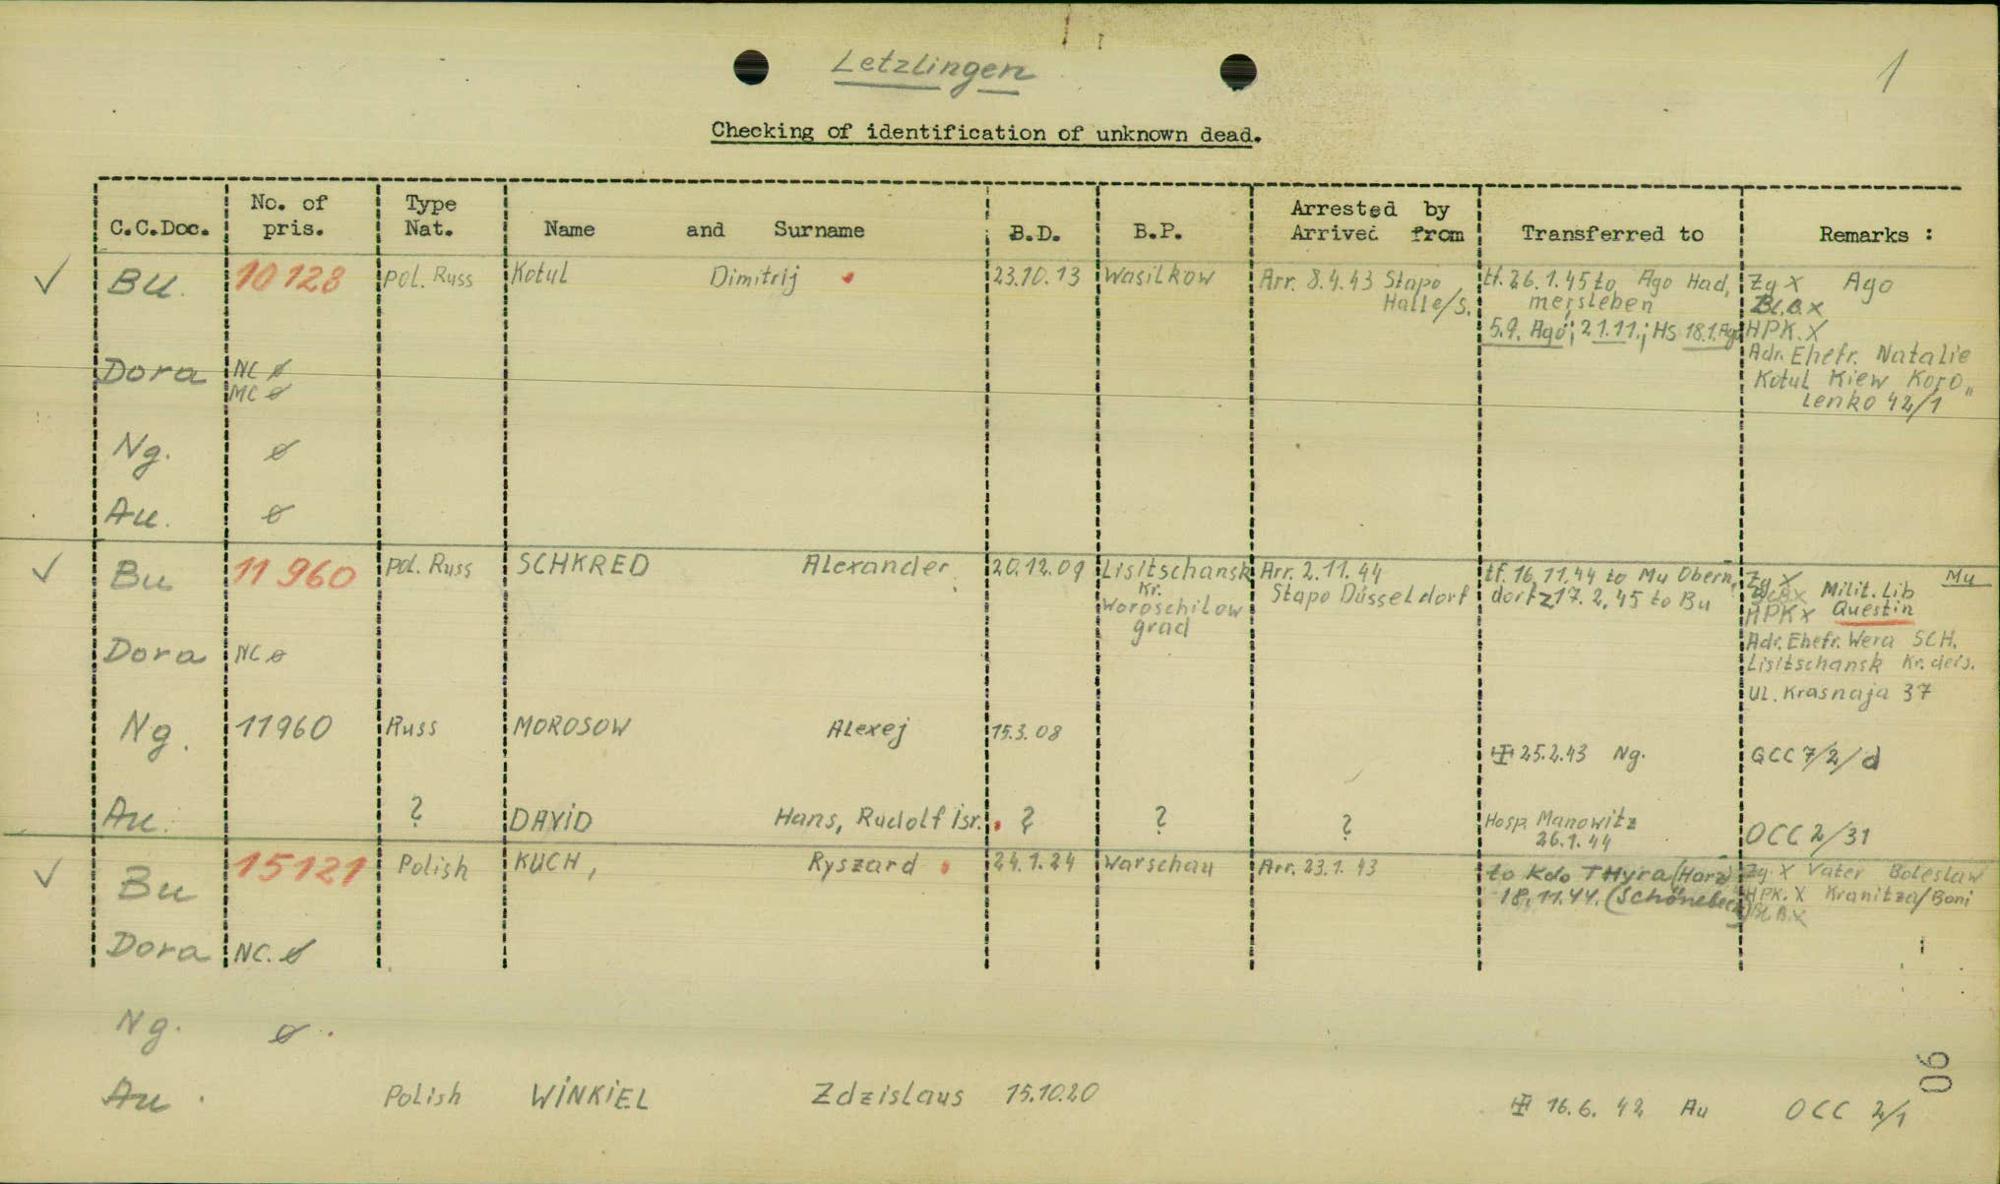 Letzlingen
1
Checking of identification of unknown dead.
C.C.Doc. No. of pris. Type Nat. Name and Surname B.D. B.P. Arrested by Arrived from Transferred to Remarks :
Bu. 10128 pol. Russ Kotul Dimitrij 23.10.13 Wasilkow Arr. 8.4.43 Stapo tf. 26.1.45 to Ago Had, Zg X Ago
Halle/S. mersleben Bl.B.X
5.9. Ago; 21.11.; HS 18.1. Ago HPK.X
Adr. Ehefr. Natalie
Dora NC ø Kotul Kiew Koro„
MC ø Lenko 42/1
Ng. ø
Au. ø
Bu 11960 pol. Russ SCHKRED Alexander 20.12.09 Lisitschansk Arr. 2.11.44 tf. 16.11.44 to Mu Obern, Zg X Milit. Lib Mu
Kr. Stapo Düsseldorf dorf 17.2.45 to Bu Bl.B.X Questin
Woroschilow HPK X
grad
Adr. Ehefr. Wera SCH.
Dora NC ø Lisitschansk Kr. ders.
Ul. Krasnaja 37
Ng. 11960 Russ MOROSOW Alexej 15.3.08
25.2.43 Ng. GCC 7/2/d
Au. ? DAVID Hans, Rudolf Isr. ? ? ? Hosp. Manowitz
26.1.44 OCC 2/31
Bu 15121 Polish KUCH, Ryszard 24.1.24 Warschau Arr. 23.1.43 to Kdo THyra (Harz) Zg X Vater Boleslaw
18.11.44. (Schönebeck) HPK.X Kranitza/Boni
Bl B.X
Dora NC. ø
Ng. ø
Au. Polish WINKIEL Zdzislaus 15.10.20 16.6.42 Au OCC 2/1
90